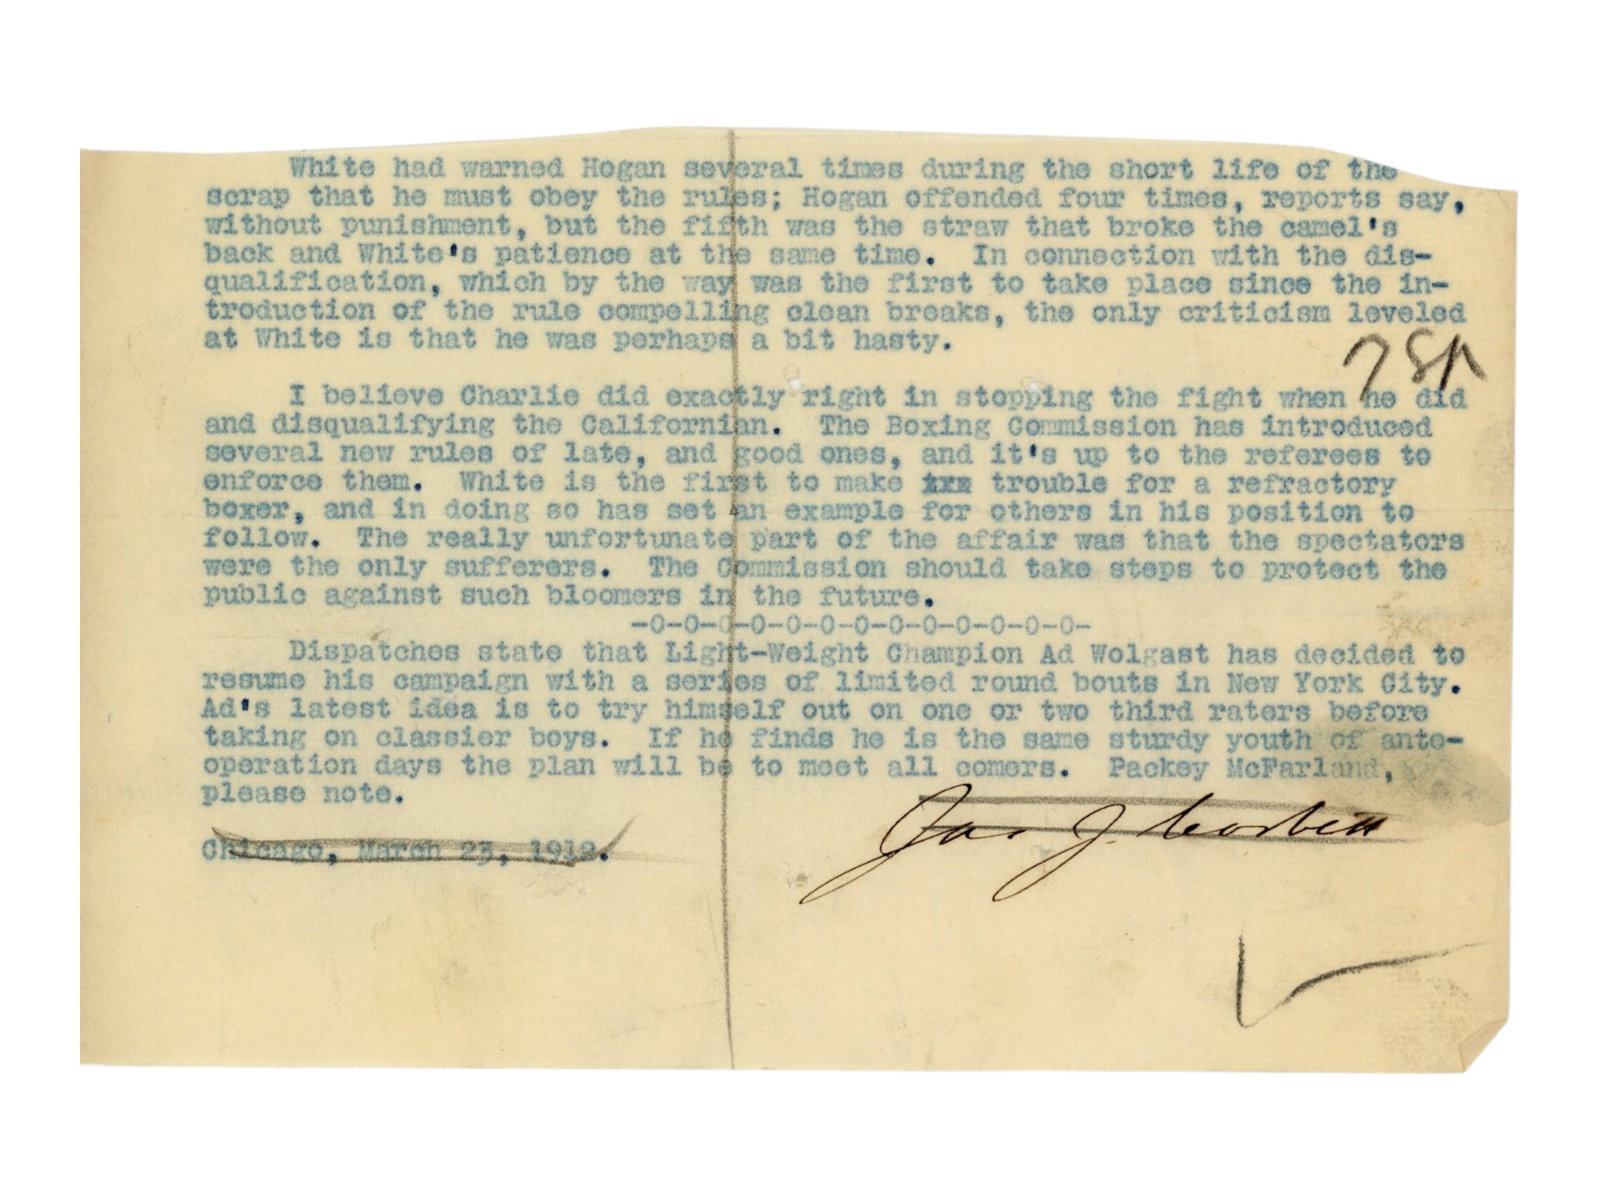 White had warned Hogan several times during the short life of the
scrap that he must obey the rules; Hogan offended four times, reports say,
without punishment, but the fifth was the straw that broke the camel's
back and White's patience at the same time. In connection with the dis-
qualification, which by the way was the first to take place since the in-
troduction of the rule compelling clean breaks, the only criticism leveled
at White is that he was perhaps a bit hasty.
I believe Charlie did exactly right in stopping the fight when he did
and disqualifying the Californian. The Boxing Commission has introduced
several new rules of late, and good ones, and it's up to the referees to
enforce them. White is the first to make trouble for a refractory
boxer, and in doing so has set an example for others in his position to
follow. The really unfortunate part of the affair was that the spectators
were the only sufferers. The Commission should take steps to protect the
public against such bloomers in the future.
-O-O-O-O-O-O-O-O-O-O-O-O-O-
Dispatches state that Light-Weight Champion Ad Wolgast has decided to
resume his campaign with a series of limited round bouts in New York City.
Ad's latest idea is to try himself out on one or two third raters before
taking on classier boys. If he finds he is the same sturdy youth of ante-
operation days the plan will be to meet all comers. Packey McFarland,
please note.
Jas. J. Corbett
Chicago, March 23, 1912.